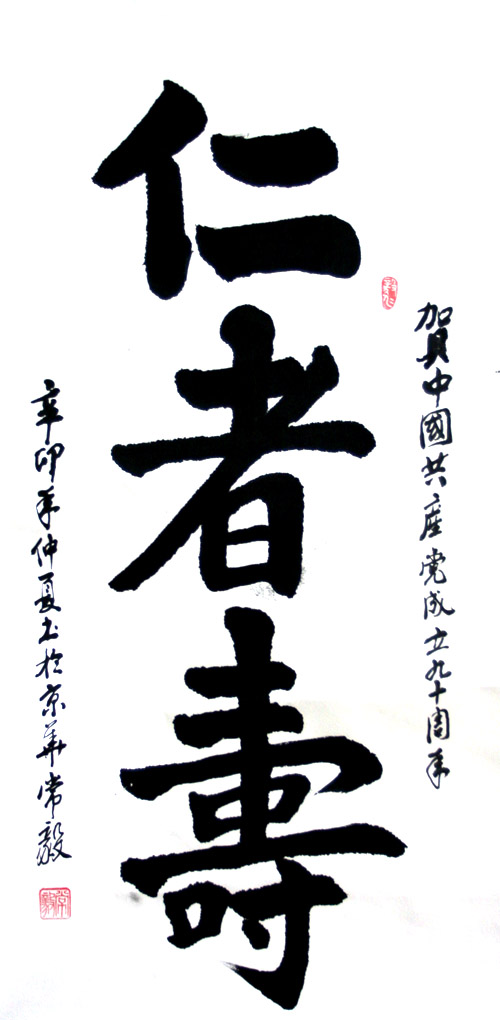 賀中國共産党成立九十周年
仁者壽
辛卯年仲夏书於京華常毅